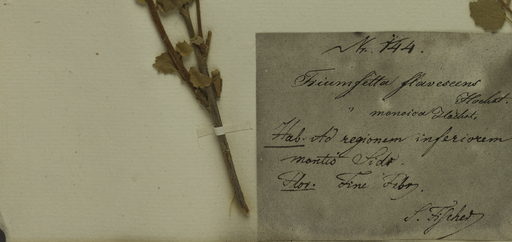 Nr. 144.
Triumfetta flavescens
Hochst.
" monoica Hochst.
Hab. Ad regionem inferiorem
montis Sidr.
Flor. Fine Febr.